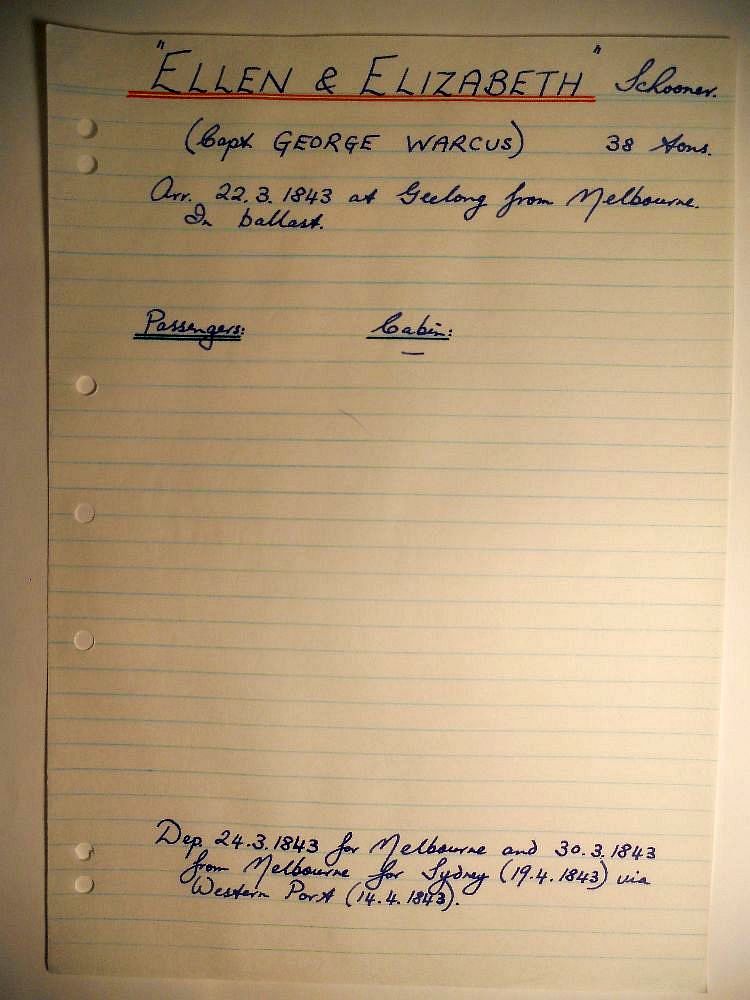 "ELLEN & ELIZABETH" Schooner.
(Capt GEORGE WARCUS) 38 tons.
Arr. 22.3.1843 at Geelong from Melbourne.
In ballast.
Passengers: Cabin:
—
Dep. 24.3.1843 for Melbourne and 30.3.1843
from Melbourne for Sydney (19.4.1843) via
Western Port (14.4.1843).